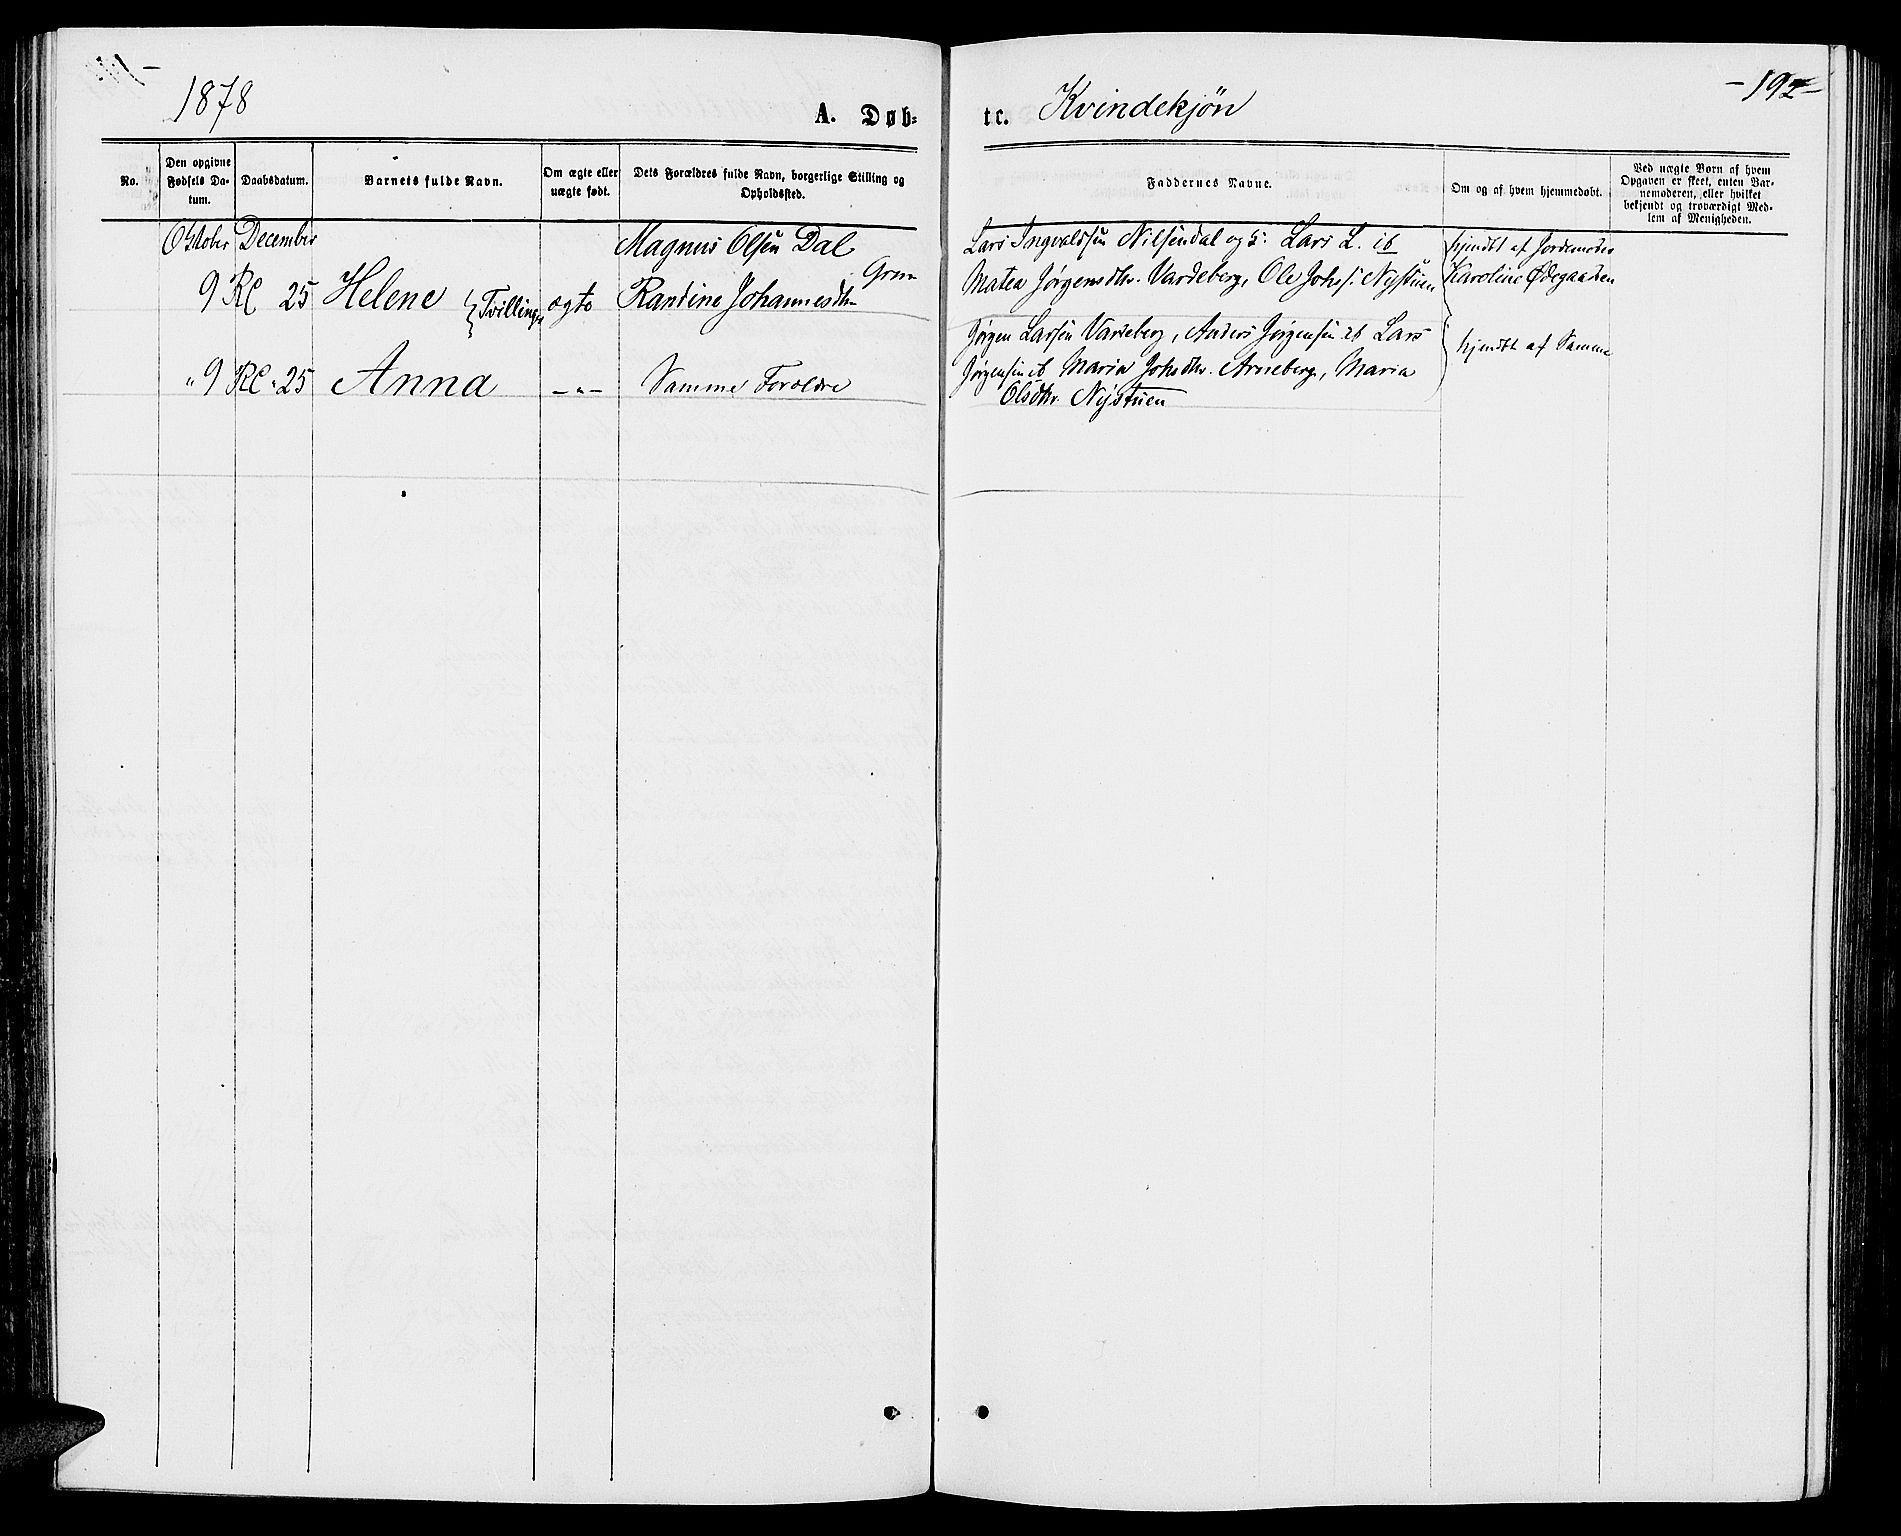 1878
A. Døb-
te.
Kvindekjøn
-192-
No.
Den opgivne Fødsels Da-tum.
Daabsdatum.
Barnets fulde Navn.
Om ægte eller uægte født.
Dets Forældres fulde Navn, borgerlige Stilling og Opholdssted.
Faddernes Navne.
Om og af hvem hjemmedøbt.
Ved uægte Børn af hvem Opgaven er skeet, enten Bar-nemoderen, eller hvilket bekjendt og troværdigt Med-lem af Menigheden.
Oktober December Magnus Olsen Dal Lars Ingvaldsen Nilsendal og h: Lars L. ib hjemdbt af Jordemoder
9 Kl 25 Helene } Tvillinger ægte Randine Johannesdtr Matea Jørgensdtr. Vardeberg, Ole Johs: Nystuen Karoline Ødegaarden
Jørgen Larsen Vardeberg, Anders Jørgensen ib Lars
" 9 Kl " 25 Anna -"- Samme Foroldre Jørgensen ib, Maria Johsdtr. Arneberg, Maria hjemdbt af Samme
Olsdtr. Nystuen